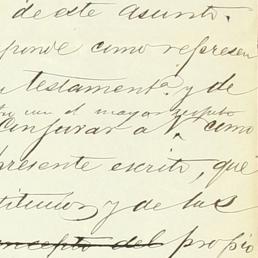 de este asunto.
ponde como represen
testamentª. y de
con el mayor respeto
Conjurar a V. como
presente escrito, que
titulos y de las
concepto del propio